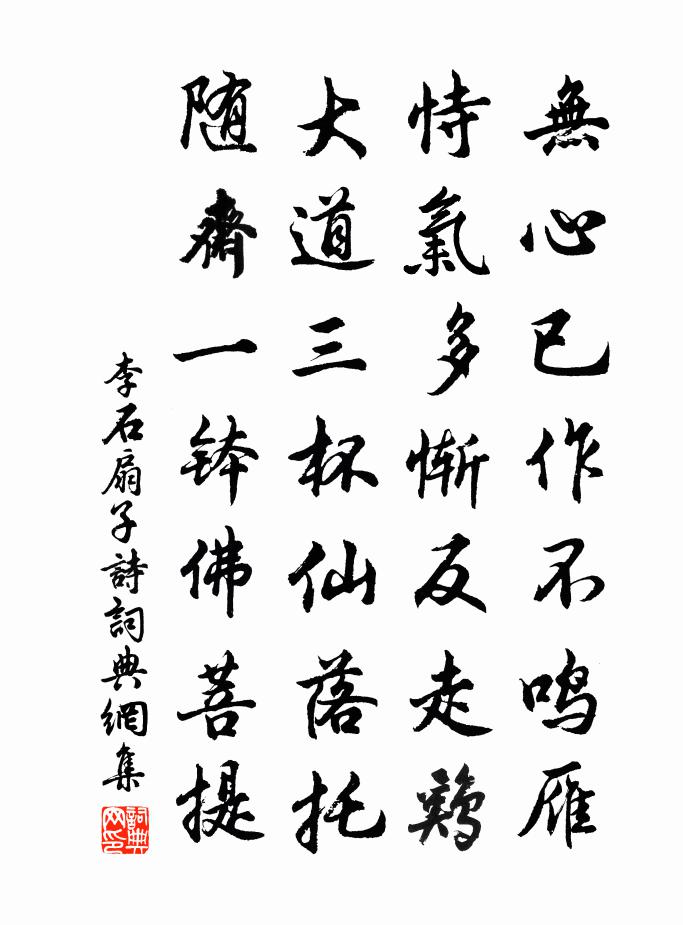 無心已作不鳴雁
恃氣多慚反走鷄
大道三杯仙落托
随齋一鉢佛菩提
李石扇子詩詞典網集
詞典网印